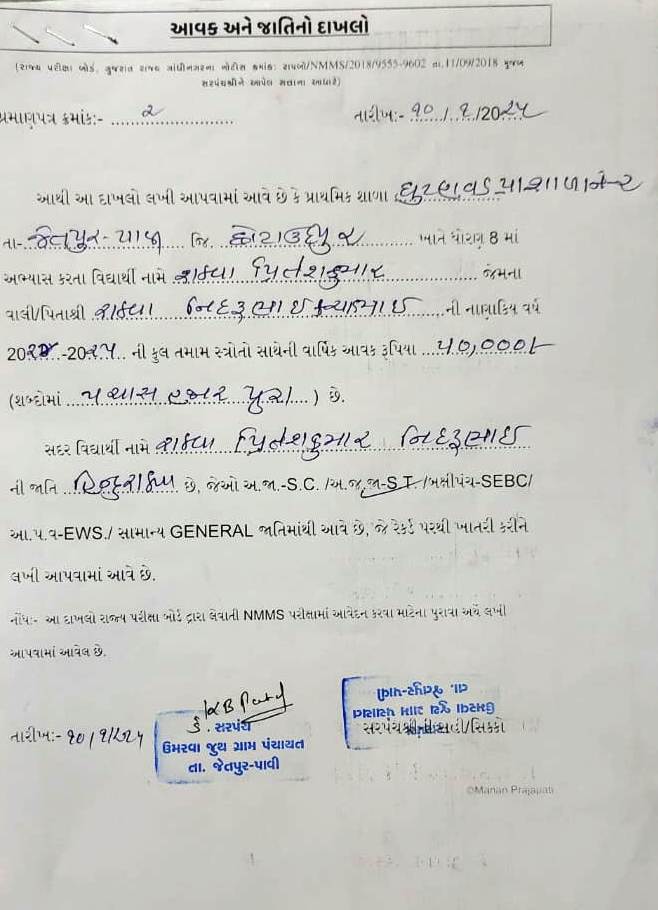 આવક અને જાતિનો દાખલો
(રાજ્ય પરીક્ષા બોર્ડ, ગુજરાત રાજ્ય ગાંધીનગરના નોટીસ ક્રમાંક: રાપબો/NMMS/2018/9555-9602 તા.11/09/2018 મુજબ
સરપંચશ્રીને આપેલ સત્તાના આધારે)
પ્રમાણપત્ર ક્રમાંક:- ૨ તારીખ:- ૧૦/૧/૨0૨૫
આથી આ દાખલો લખી આપવામાં આવે છે કે પ્રાથમિક શાળા ઘુટણવડ
તા- જેતપુર-પાવી જિ. છોટાઉદેપુર ખાતે ધોરણ 8 માં
અભ્યાસ કરતા વિદ્યાર્થી નામે રાઠવા પ્રિતેશકુમાર જેમના
વાલી/પિતાશ્રી રાઠવા ની નાણાકિય વર્ષ
20૨૪-20૨૫ ની કુલ તમામ સ્ત્રોતો સાથેની વાર્ષિક આવક રૂપિયા ૫૦,૦૦૦/-
(શબ્દોમાં પચાસ હજાર પુરા) છે.
સદર વિદ્યાર્થી નામે રાઠવા પ્રિતેશકુમાર
ની જાતિ હિન્દુ રાઠવા છે, જેઓ અ.જા.-S.C. /અ.જ.જા-S.T. /બક્ષીપંચ-SEBC/
આ.પ.વ-EWS./ સામાન્ય GENERAL જાતિમાંથી આવે છે, જે રેકર્ડ પરથી ખાતરી કરીને
લખી આપવામાં આવે છે.
નોંધ:- આ દાખલો રાજ્ય પરીક્ષા બોર્ડ દ્રારા લેવાતી NMMS પરીક્ષામાં આવેદન કરવા માટેના પુરાવા અર્થે લખી
આપવામાં આવેલ છે.
તા. જેતપુર-પાવી
ઉમરવા જુથ ગ્રામ પંચાયત
સરપંચશ્રીની સહી/સિક્કો
તારીખ:- ૧૦/૧/૨૦૨૫
ઇ. સરપંચ
ઉમરવા જુથ ગ્રામ પંચાયત
તા. જેતપુર-પાવી
©Manan Prajapati